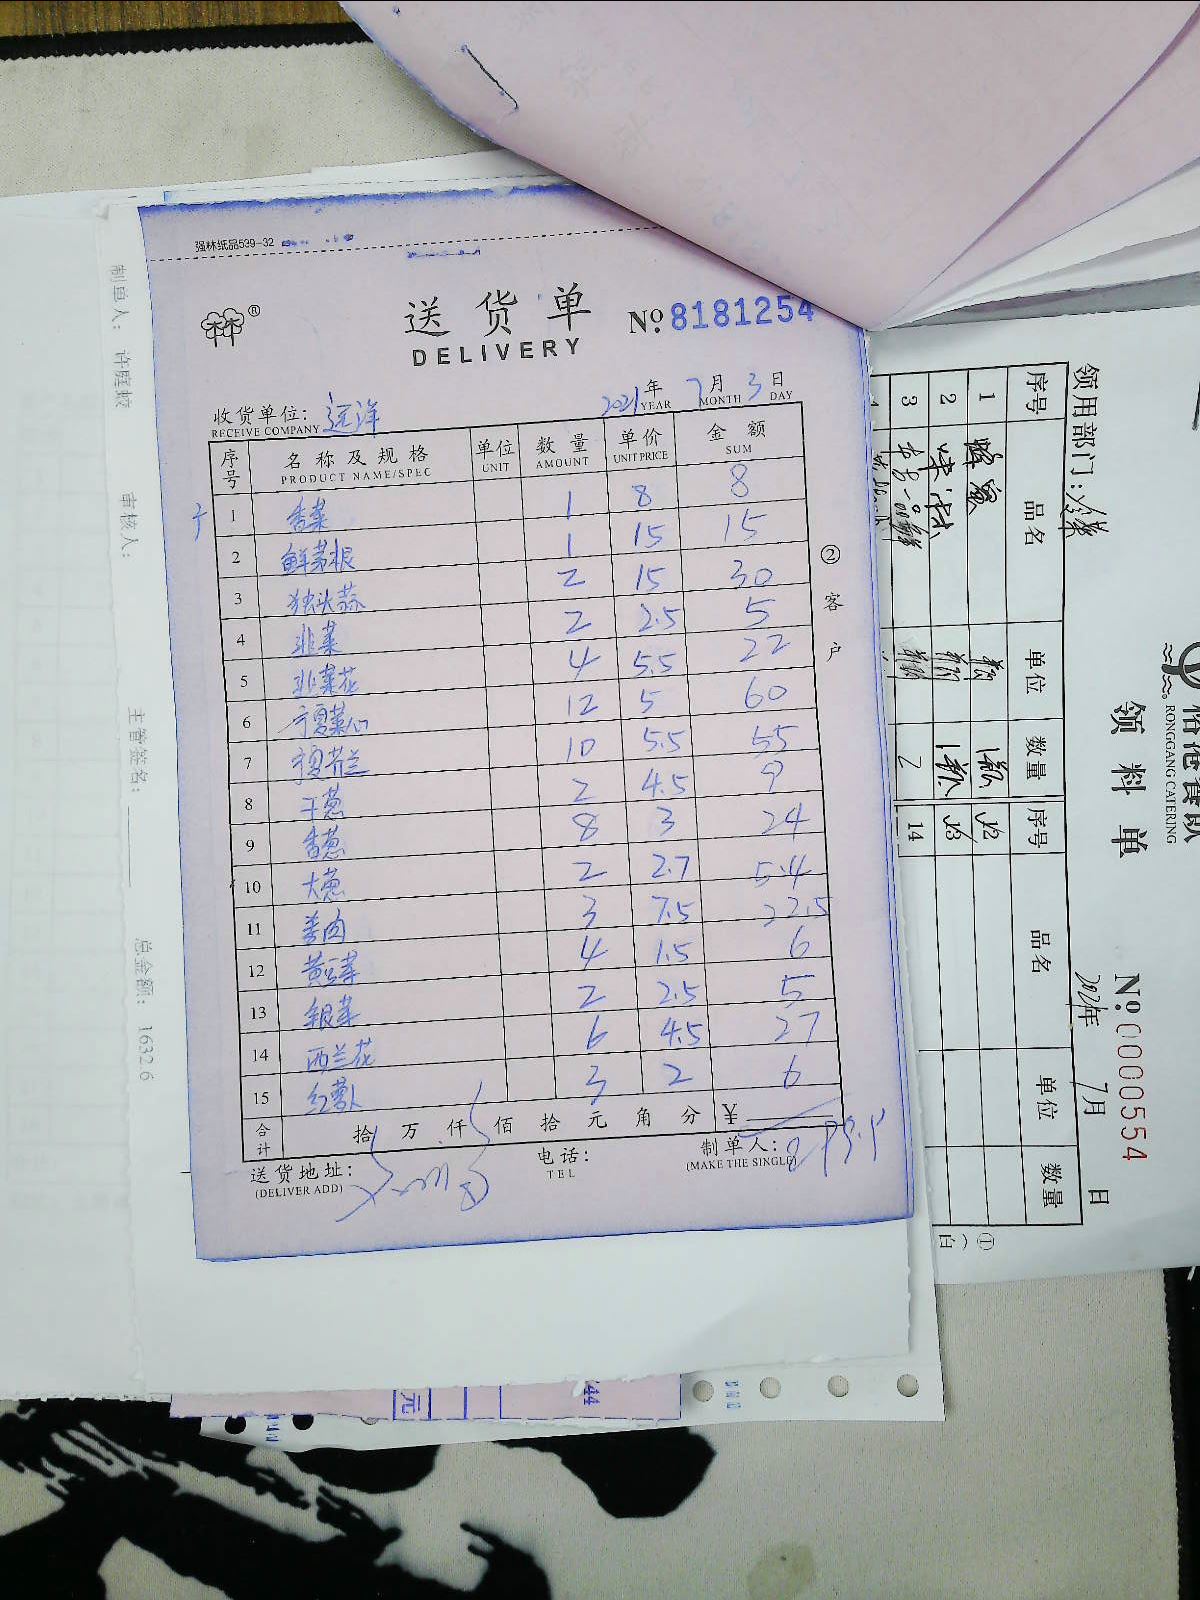 强林纸品539-32
送货单
DELIVERY
№ 8181254
收货单位: 远洋
RECEIVE COMPANY
2021年 7月 3日
YEAR MONTH DAY
序号 名称及规格 单位 数量 单价 金额
PRODUCT NAME/SPEC UNIT AMOUNT UNIT PRICE SUM
1 香菜 1 8 8
2 鲜茅根 1 15 15
3 独头蒜 2 15 30
4 韭菜 2 2.5 5
5 韭菜花 4 5.5 22
6 宁夏菜心 12 5 60
7 宁夏芥兰 10 5.5 55
8 干葱 2 4.5 9
9 香葱 8 3 24
10 大葱 2 2.7 5.4
11 姜肉 3 7.5 22.5
12 黄豆芽 4 1.5 6
13 银芽 2 2.5 5
14 西兰花 6 4.5 27
15 红萝卜 3 2 6
合计 拾 万 仟 佰 拾 元 角 分 ¥
送货地址:
(DELIVER ADD)
电话:
TEL
制单人:
(MAKE THE SINGLE)
② 客户
制单人: 许庭蛟
审核人:
主管签名:
总金额: 1632.6
RONGGANG CATERING
领料单
№0000554
领用部门: 冷菜
2021年 7月 日
序号 品名 单位 数量 序号 品名 单位 数量
1 蜂蜜
2
3
14
① (白
元
44